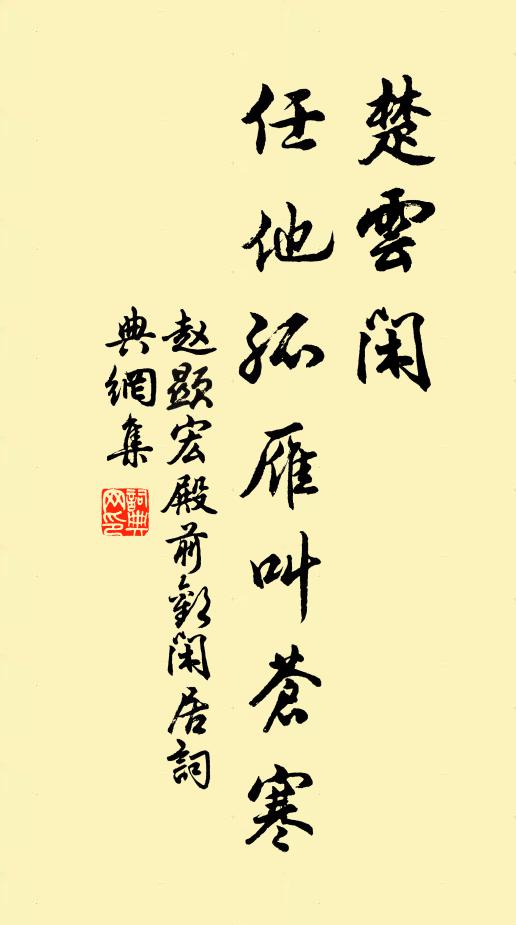 楚雲閑
任他孤雁叫蒼寒
赵顯宏殿前歡閑居詞
典網集
詞典
网印